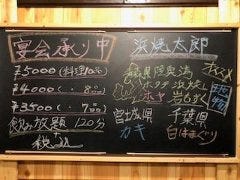 宴会承り中
¥5000(料理10品)
¥4000(〃 8品)
¥3500(〃 7品)
飲み放題 120分
税込
浜焼太郎
オススメ
青森県陸奥湾
ホタテ浜焼
ホヤ 岩もずく
宮城県
カキ
千葉県
白はまぐり